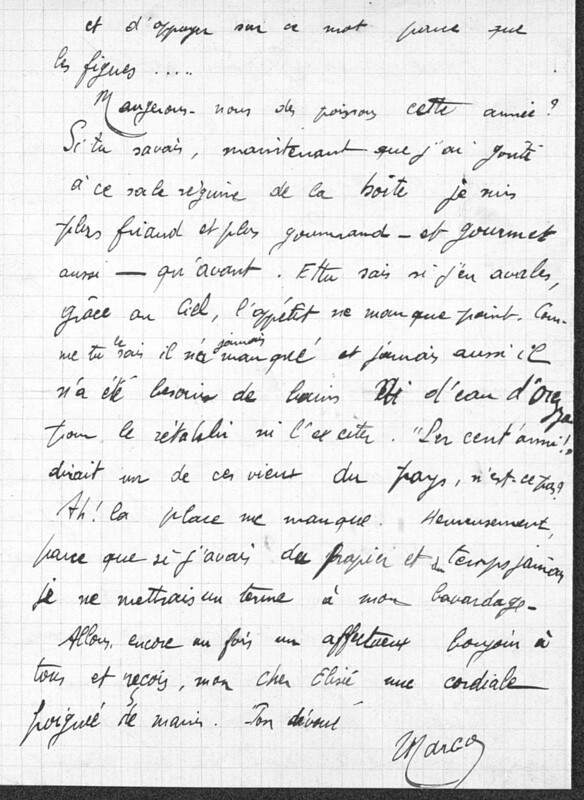 et d'appuyer sur ce mot parce que
les figues .....
Mangerons-nous des poissons cette année ?
Si tu savais, maintenant que j'ai goûté
à ce sale régime de la boîte je suis
plus friand et plus gourmand — et gourmet
aussi — qu'avant. Et tu sais si j'en avales,
grâce au Ciel, l'appétit ne manque point. Com-
me tu le sais il n'a jamais manqué et jamais aussi il
n'a été besoin de bains ni d'eau d'Orezza
pour le rétablir ni l'exciter. "Per cent'anni!"
dirait un de ces vieux du pays, n'est-ce pas?
Ah! la place me manque. Heureusement,
parce que si j'avais du papier et du temps jamais
je ne mettrais un terme à mon bavardage.
Allons, encore un fois un affectueux bonjour à
tous et reçois, mon cher Elisé une cordiale
poignée de mains. Ton dévoué
Marco